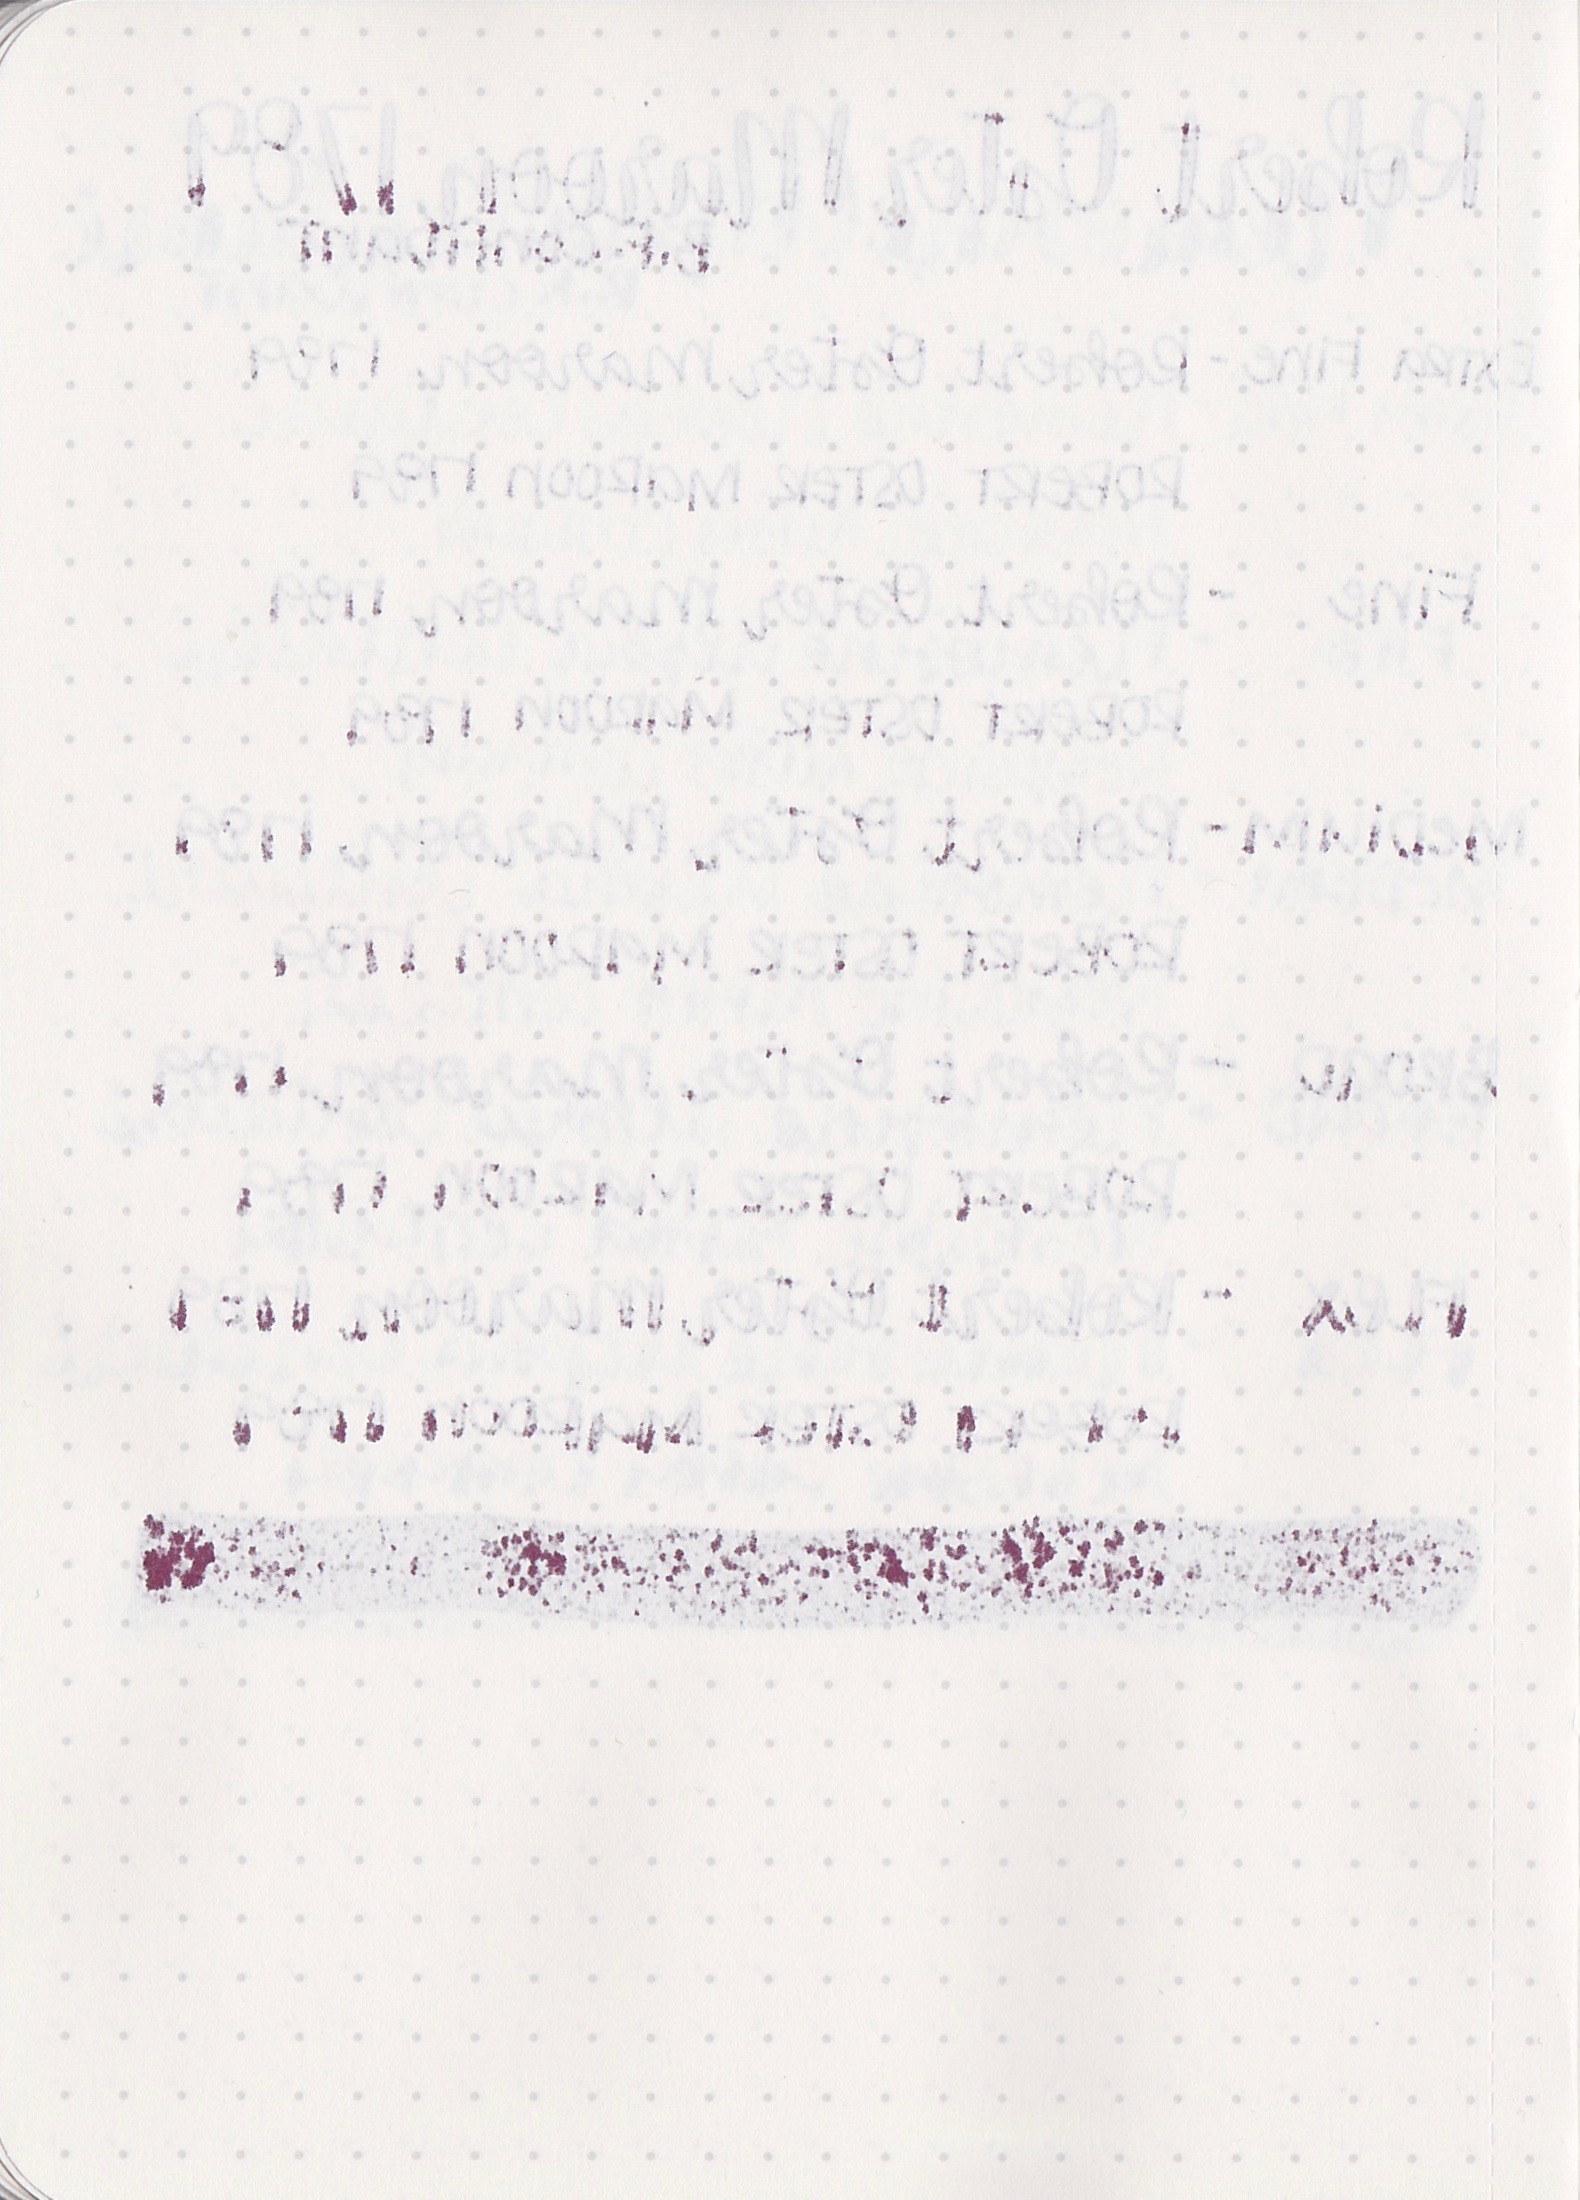 Robert Oster Maroon 1789
Extra Fine - Robert Oster Maroon 1789
ROBERT OSTER MAROON 1789
Fine - Robert Oster Maroon 1789
ROBERT OSTER MAROON 1789
Medium - Robert Oster Maroon 1789
ROBERT OSTER MAROON 1789
Broad - Robert Oster Maroon 1789
ROBERT OSTER MAROON 1789
Flex - Robert Oster Maroon 1789
ROBERT OSTER MAROON 1789